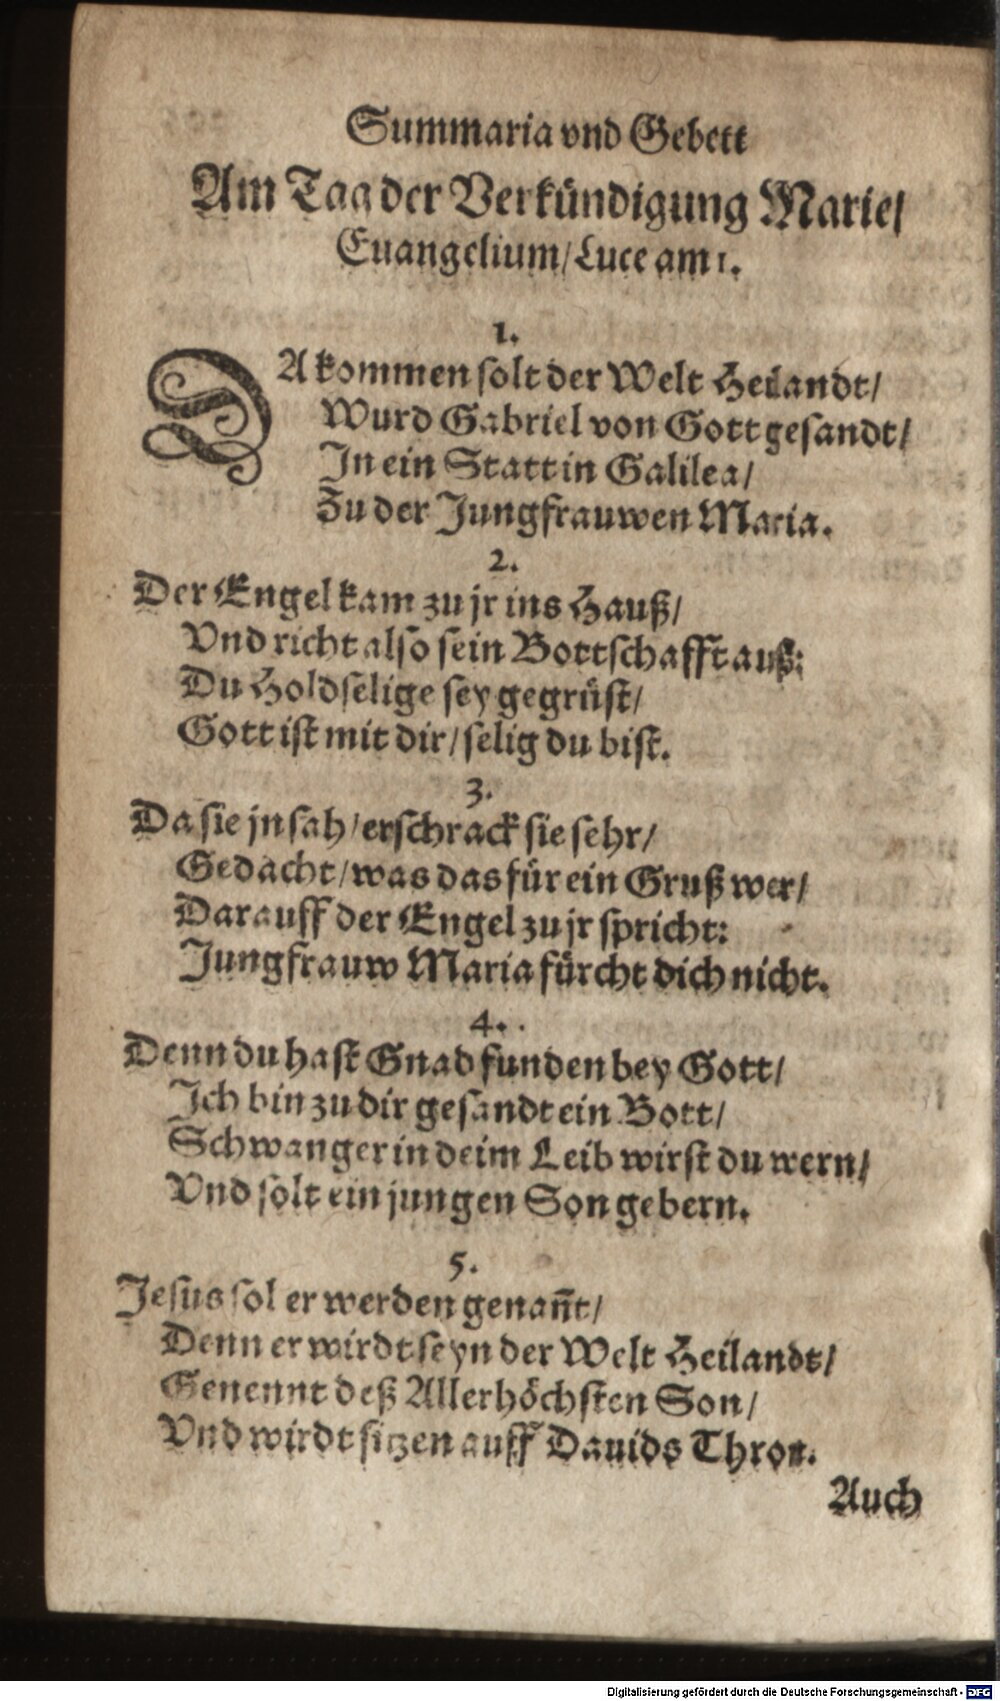 Summaria vnd Gebett
Am Tag der Verkündigung Marie/
Euangelium/Luce am 1.
1.
DA kommen solt der Welt Heilandt/
Wurd Gabriel von Gott gesandt/
In ein Statt in Galilea/
Zu der Jungfrauwen Maria.
2.
Der Engel kam zu jr ins Hauß/
Vnd richt also sein Bottschafft auß:
Du Holdselige sey gegrüst/
Gott ist mit dir/selig du bist.
3.
Da sie jn sah/erschrack sie sehr/
Gedacht/was das für ein Gruß wer/
Darauff der Engel zu jr spricht:
Jungfrauw Maria fürcht dich nicht.
4.
Denn du hast Gnad funden bey Gott/
Ich bin zu dir gesandt ein Bott/
Schwanger in deim Leib wirst du wern/
Vnd solt ein jungen Son gebern.
5.
Jesus sol er werden genañt/
Denn er wirdt seyn der Welt Heilandt/
Genennt deß Allerhöchsten Son/
Vnd wirdt sitzen auff Dauids Thron.
Auch
Digitalisierung gefördert durch die Deutsche Forschungsgemeinschaft - DFG